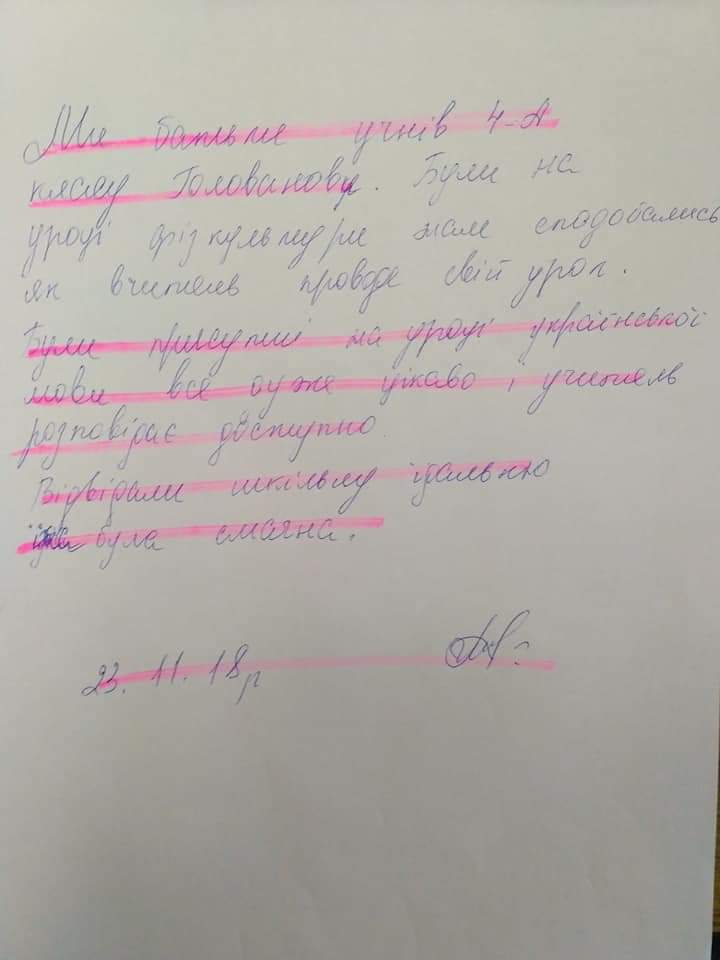 Ми батьки учнів 4-А
класу Голованову. Були на
уроці фізкультури нам сподобались
як вчитель проводе свій урок.
Були присутні на уроці української
мови все дуже цікаво і учитель
розповідає доступно
Відвідали шкільну їдальню
їжа була смачна.
23. 11. 18р